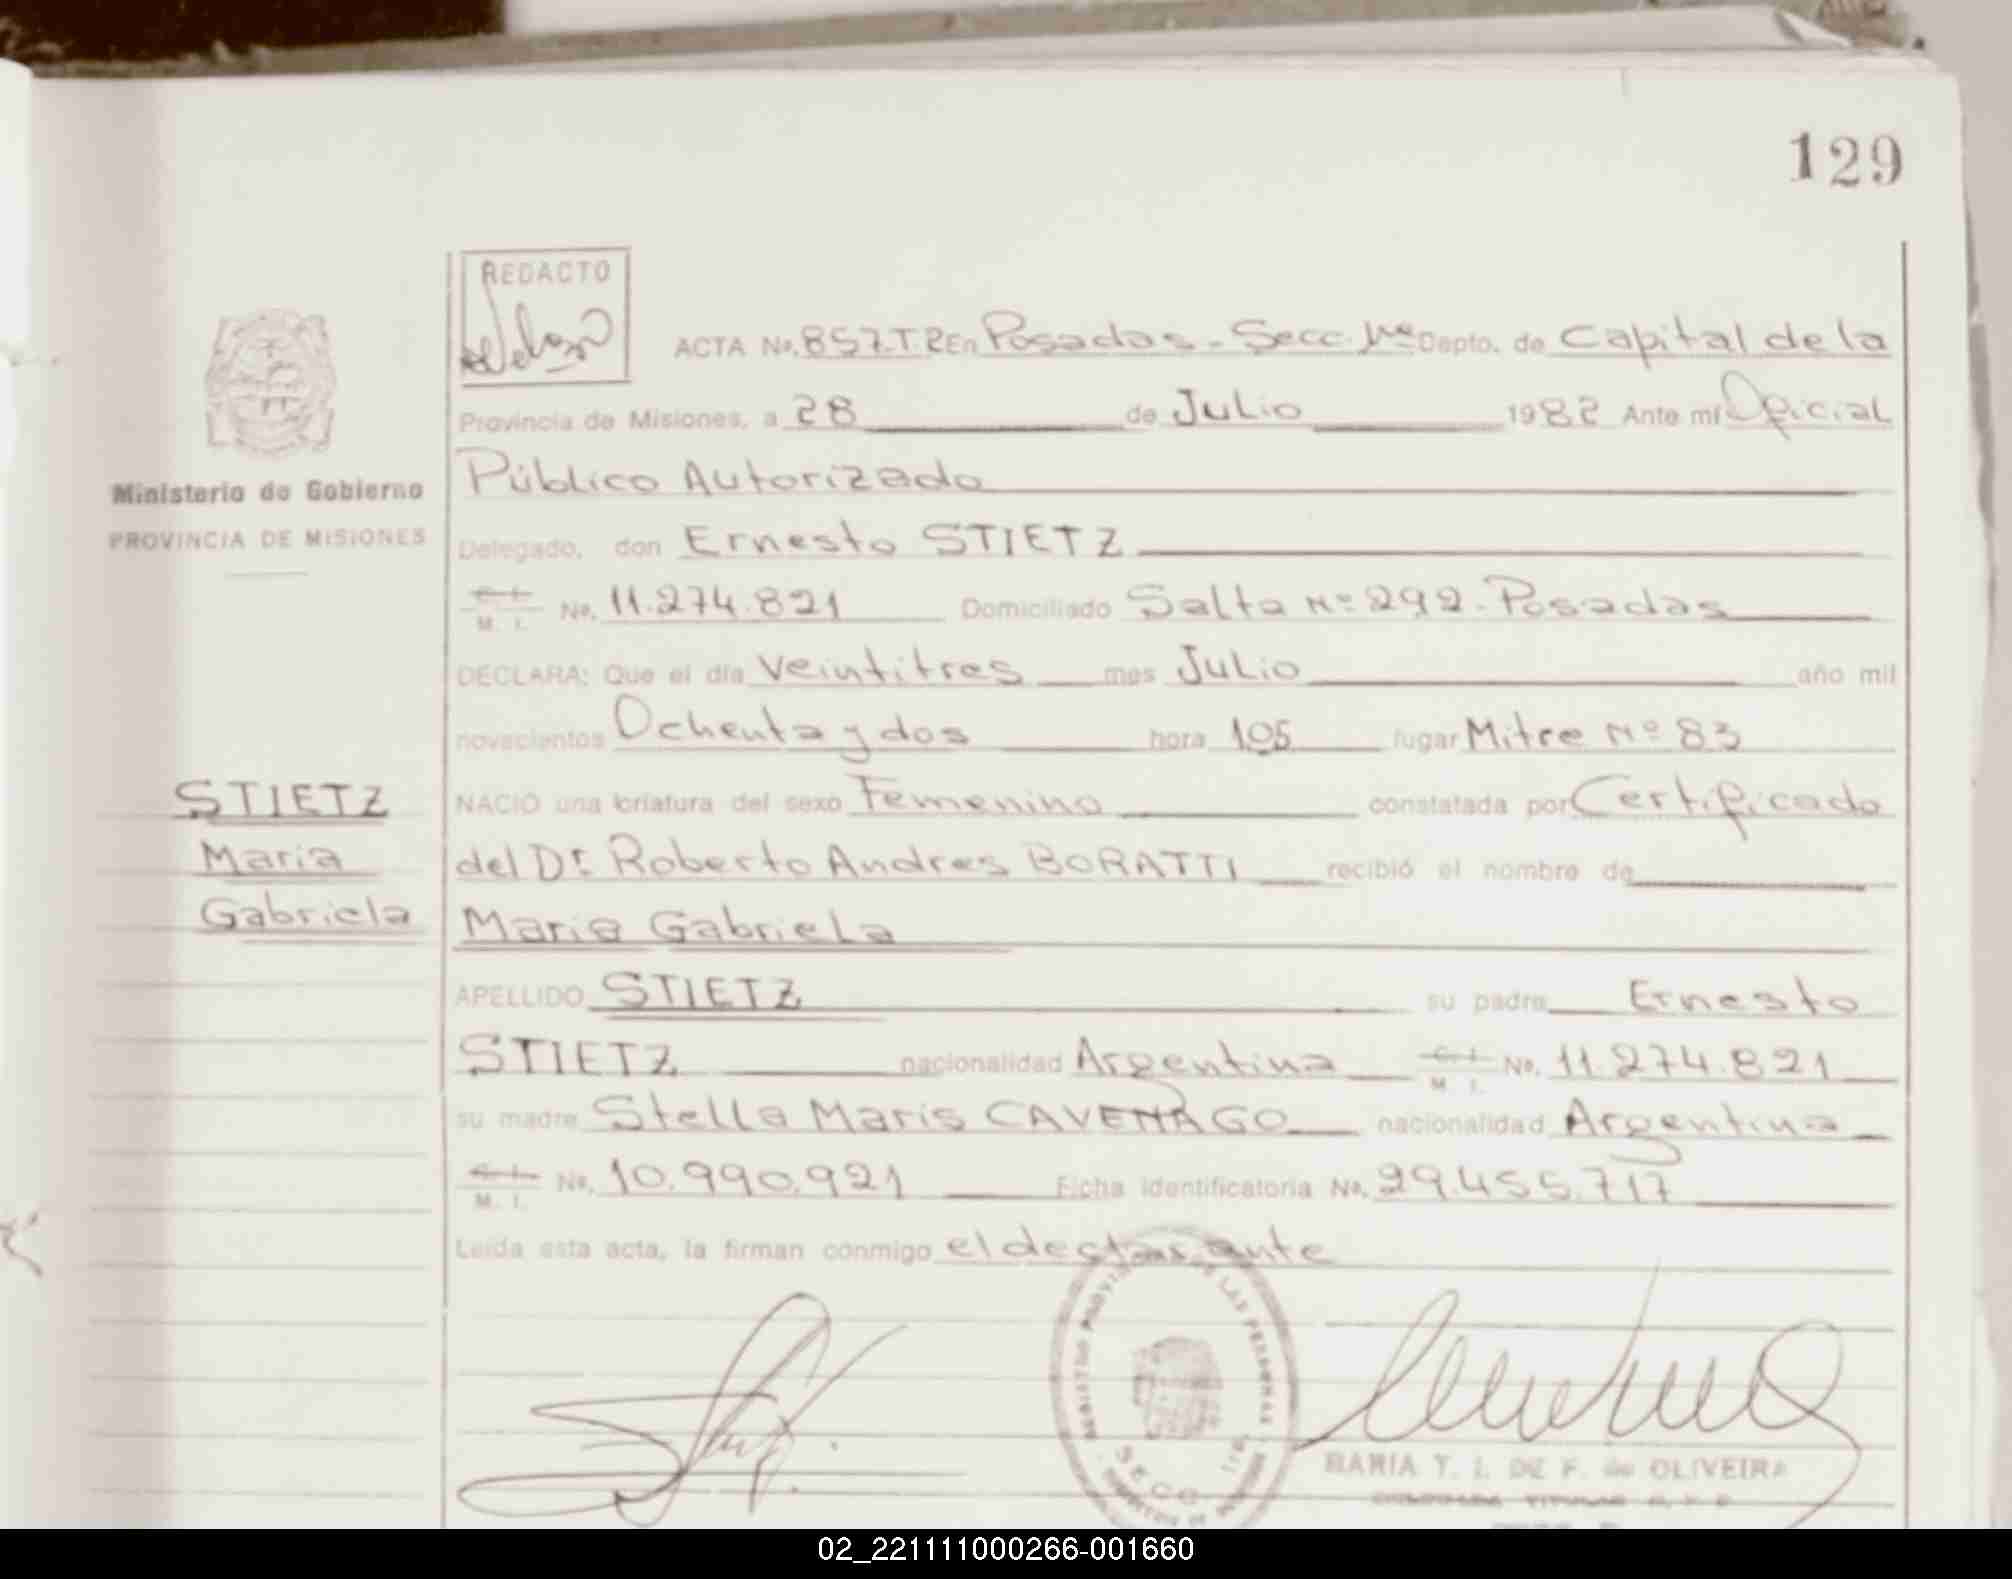 129
REDACTO
ACTA Nº. 857.T.2 En Posadas - Secc. 1ª Depto. de Capital de la
Provincia de Misiones, a 28 de Julio 1982 Ante mí Oficial
Público Autorizado
Ministerio de Gobierno
PROVINCIA DE MISIONES
Delegado, don Ernesto STIETZ
C. I. M. I. Nº. 11.274.821 Domiciliado Salta Nº 292 - Posadas
DECLARA: Que el día veintitres mes Julio año mil
novecientos Ochenta y dos hora 1,05 lugar Mitre Nº 83
STIETZ
Maria
Gabriela
NACIO una criatura del sexo Femenino constatada por Certificado
del Dr. Roberto Andres BORATTI recibió el nombre de
Maria Gabriela
APELLIDO STIETZ su padre Ernesto
STIETZ nacionalidad Argentina C. I. M. I. Nº. 11.274.821
su madre Stella Maris CAVENAGO nacionalidad Argentina
C. I. M. I. Nº. 10.990.921 Ficha identificatoria Nº. 29.455.717
Leída esta acta, la firman conmigo el declarante
REGISTRO PROVINCIAL DE LAS PERSONAS
SECC.
MARIA T. I. DE F. de OLIVEIRA
02_221111000266-001660